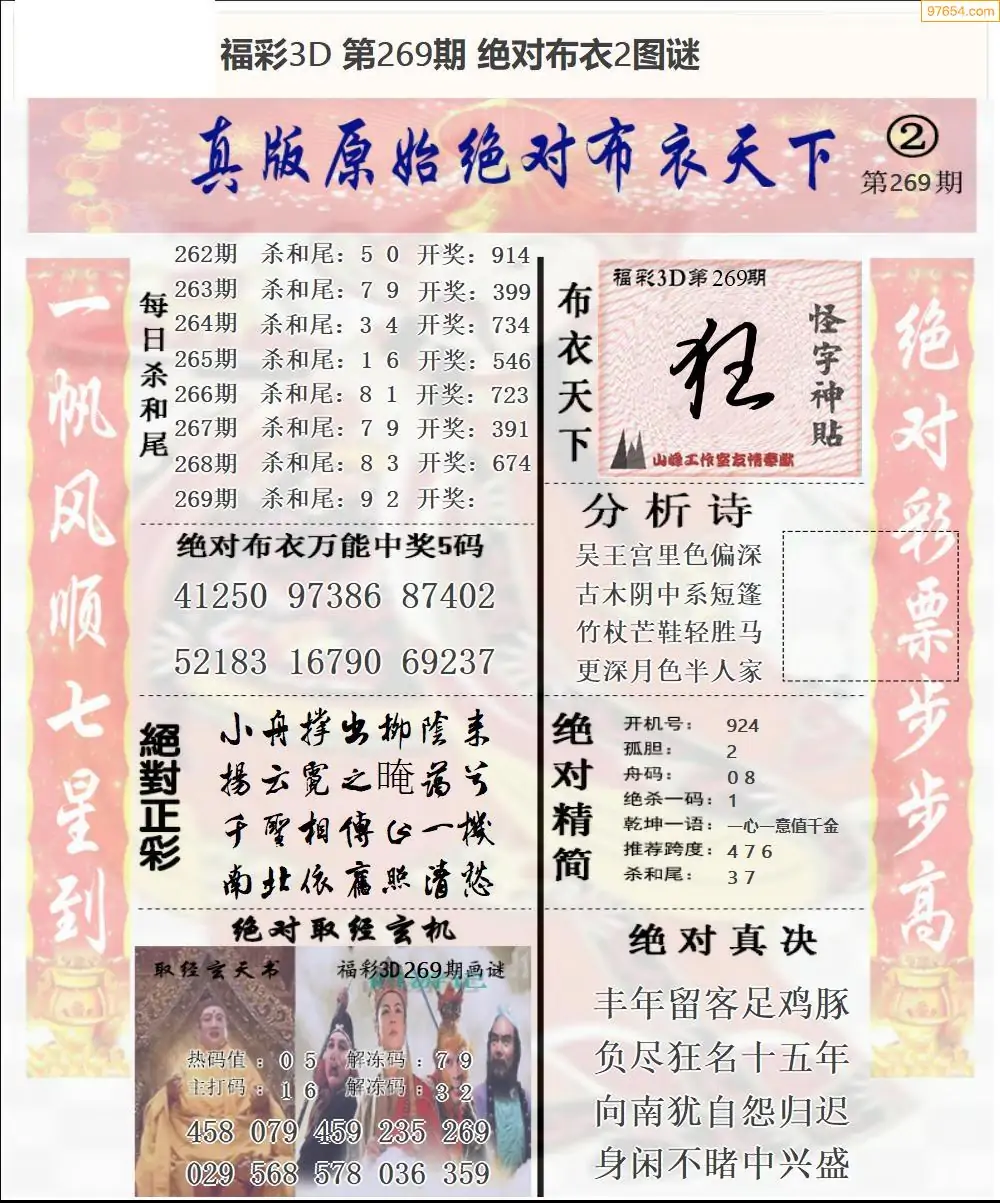 97654.com
福彩3D 第269期 绝对布衣2图谜
真版原始绝对布衣天下
②
第269期
一帆风顺七星到
每日杀和尾
262期 杀和尾：5 0 开奖：914
263期 杀和尾：7 9 开奖：399
264期 杀和尾：3 4 开奖：734
265期 杀和尾：1 6 开奖：546
266期 杀和尾：8 1 开奖：723
267期 杀和尾：7 9 开奖：391
268期 杀和尾：8 3 开奖：674
269期 杀和尾：9 2 开奖：
绝对布衣万能中奖5码
41250 97386 87402
52183 16790 69237
絕對正彩
小舟撑出柳陰来
揚云霓之晻蔼兮
千聖相傳只一機
南北依舊照清愁
绝对取经玄机
取经玄天书
福彩3D269期画谜
热码值：0 5 解冻码：7 9
主打码：1 6 解冻码：3 2
458 079 459 235 269
029 568 578 036 359
布衣天下
福彩3D第269期
狂
怪字神贴
山峰工作室友情奉献
分析诗
吴王宫里色偏深
古木阴中系短篷
竹杖芒鞋轻胜马
更深月色半人家
绝对精简
开机号：924
孤胆：2
舟码：0 8
绝杀一码：1
乾坤一语：一心一意值千金
推荐跨度：4 7 6
杀和尾：3 7
绝对真决
丰年留客足鸡豚
负尽狂名十五年
向南犹自怨归迟
身闲不睹中兴盛
绝对彩票步步高